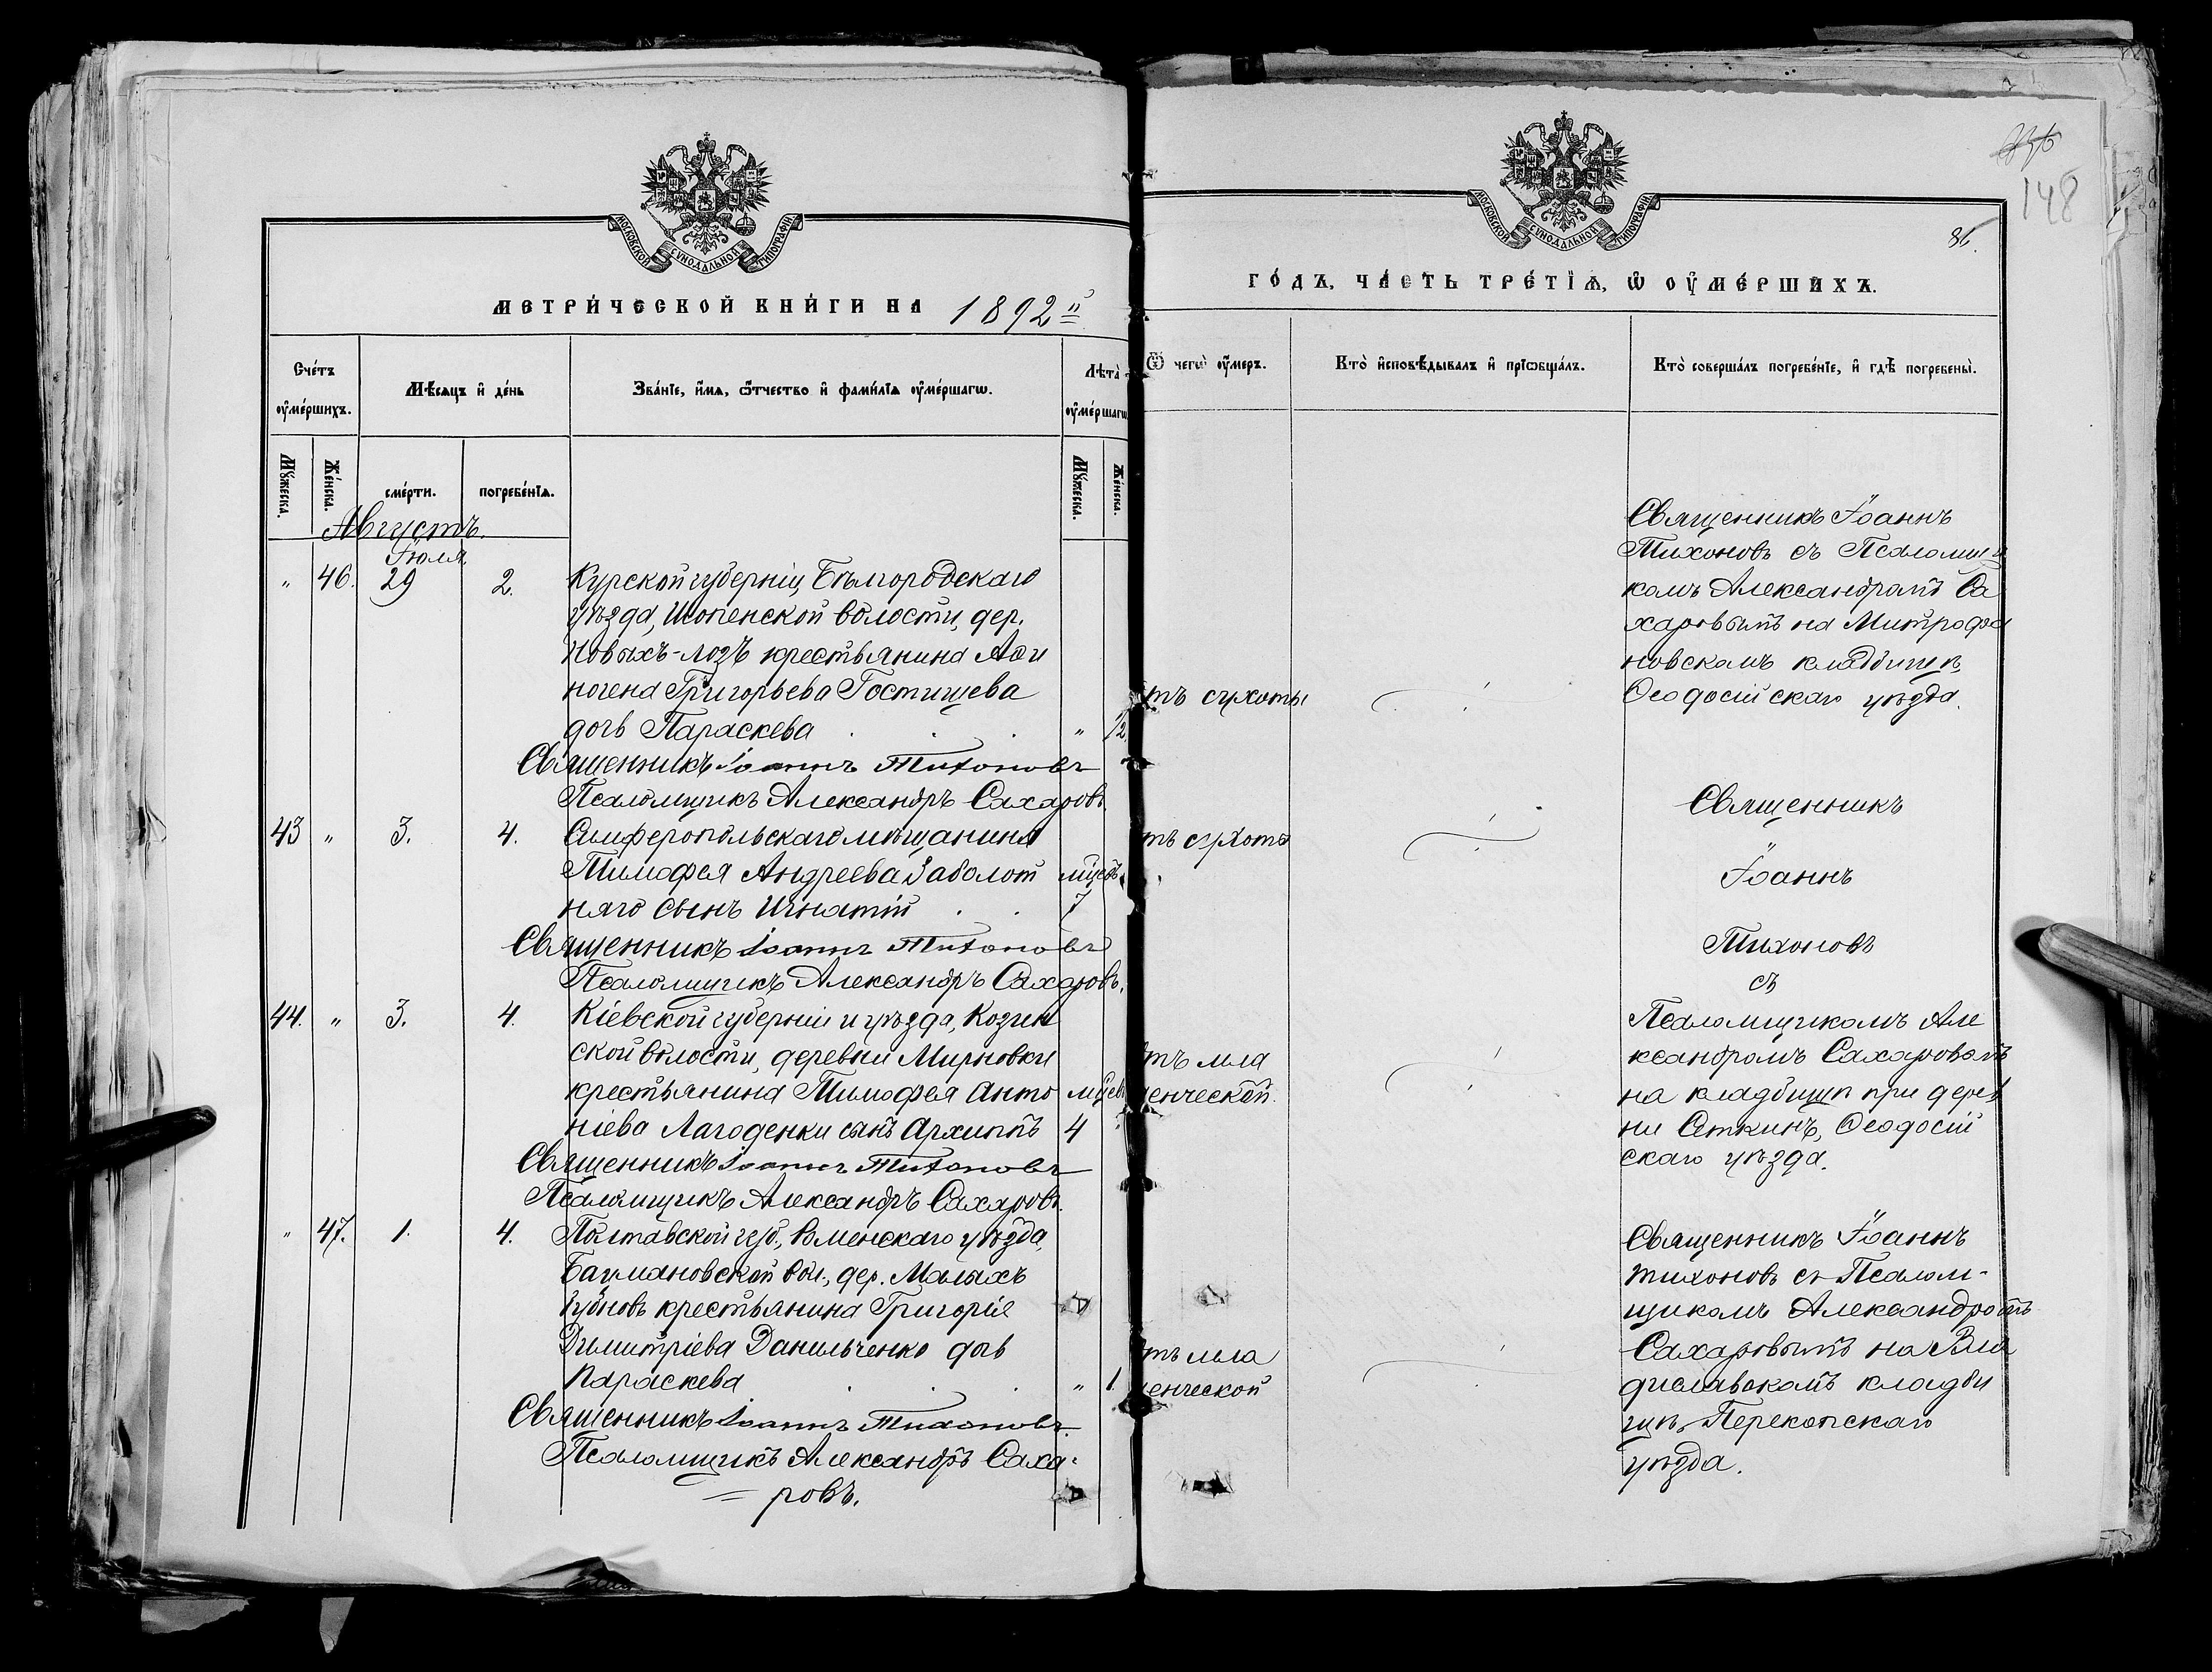 МОСКОВСКОЙ СѴНОДАЛЬНОЙ ТИПОГРАФІИ
МЕТРИ́ЧЕСКОЙ КНИ́ГИ НА 1892й
Сче́тъ ᲂу҆ме́ршихъ.
Мѣ́сяцъ и҆ де́нь
Зва́нїе, и҆́мѧ, ѻ҆́тчество и҆ фами́лїѧ ᲂу҆ме́ршагѡ.
Лѣ́та ᲂу҆ме́ршагѡ
Мꙋ́жеска.
Же́нска.
сме́рти.
погребе́нїѧ.
Мꙋ́жеска.
Же́нска.
Августъ.
Іюля
" 46. 29 2. Курской губерніи, Бѣлгородскаго
уѣзда, Шопенской волости, дер.
Новыхъ-лозъ крестьянина Аѳи
ногена Григорьева Гостищева
дочь Параскева " 1/2
Священникъ Іоаннъ Тихоновъ
Псаломщикъ Александръ Сахаровъ
43 " 3. 4. Симферопольскаго мѣщанина
Тимофея Андреева Заболот мѣсяц
няго сынъ Игнатій 7
Священникъ Іоаннъ Тихоновъ
Псаломщикъ Александръ Сахаровъ.
44. " 3. 4. Кіевской губерніи и уѣзда, Козин
ской волости, деревни Мировки
крестьянина Тимофея Анто мѣсяц
ніева Лагоденки сынъ Архиппъ 4
Священникъ Іоаннъ Тихоновъ
Псаломщикъ Александръ Сахаровъ.
" 47. 1. 4. Полтавской губ., Роменскаго уѣзда,
Бацмановской вол., дер. Малыхъ
Бубновъ крестьянина Григорія
Димитріева Данильченко дочь
Параскева " 1.
Священникъ Іоаннъ Тихоновъ.
Псаломщикъ Александръ Саха-
= ровъ.
148
86.
МОСКОВСКОЙ СѴНОДАЛЬНОЙ ТИПОГРАФІИ
ГО́ДЪ, ЧА́СТЬ ТРЕ́ТЇѦ, Ѡ҆ ОУ҆МЕ́РШИХЪ.
Ѿ чегѡ̀ ᲂу҆́меръ.
Кто̀ и҆сповѣ́дывалъ и҆ прїѡбща́лъ.
Кто̀ соверша́лъ погребе́нїе, и҆ гдѣ̀ погребены̀.
Священникъ Іоаннъ
Тихоновъ съ Псаломщи
комъ Александромъ Са
харовымъ на Митрофа
новскомъ кладбищѣ,
тъ сухоты
Ѳеодосійскаго уѣзда.
Священникъ
тъ сухоты
Іоаннъ
Тихоновъ
съ
Псаломщикомъ Але
тъ мла
ксандромъ Сахаровымъ
денческой.
на кладбищѣ при дерев
ни Аткинъ, Ѳеодосій
скаго уѣзда.
Священникъ Іоаннъ
Тихоновъ съ Псалом-
щикомъ Александромъ
тъ мла
Сахаровымъ на Вла
денческой
диславскомъ кладби
щѣ, Перекопскаго
уѣзда.